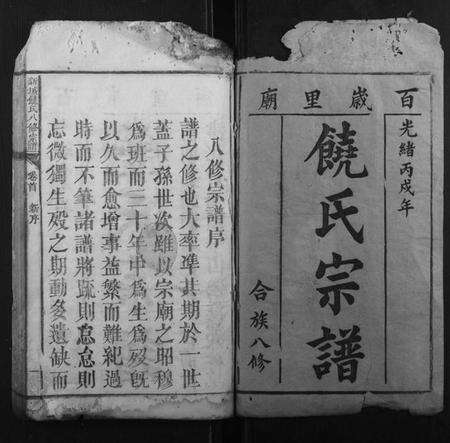 百歲里廟
光緒丙戌年
饒氏宗譜
合族八修
八修宗譜序
譜之修也大率準其期於一世
蓋子孫世次雖以宗廟之昭穆
為班而二十年中為生為歿旣
以久而愈增事益繁而難紀過
時而不筆諸譜將踈則怠怠則
忘微獨生殁之期動多遺缺而
饒氏八修宗譜
卷首
新序